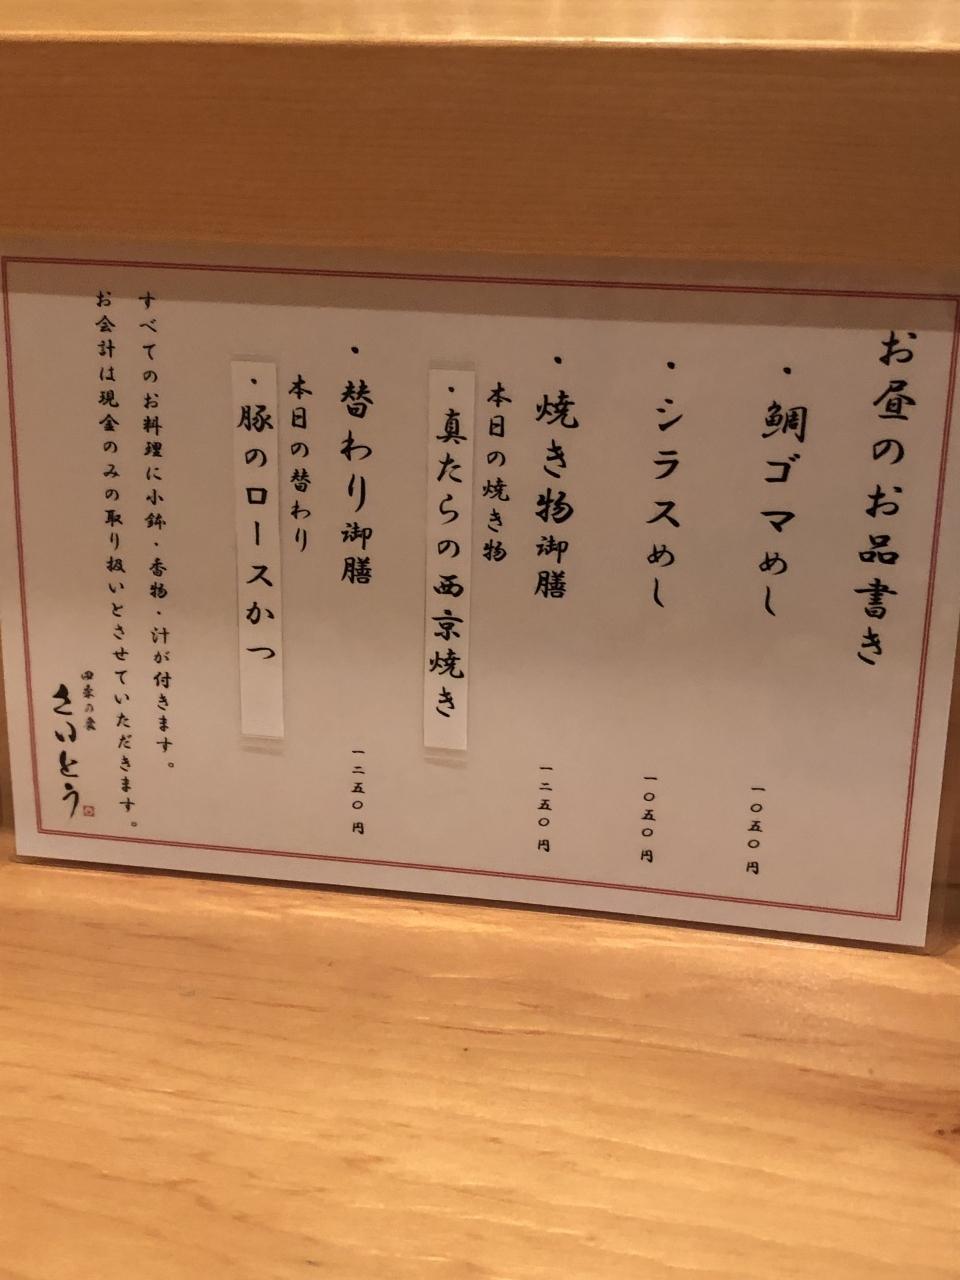 お昼のお品書き
・鯛ゴマめし 一〇五〇円
・シラスめし 一〇五〇円
・焼き物御膳 一二五〇円
本日の焼き物
・真たらの西京焼き
・替わり御膳 一二五〇円
本日の替わり
・豚のロースかつ
すべてのお料理に小鉢・香物・汁が付きます。
お会計は現金のみの取り扱いとさせていただきます。
さいとう